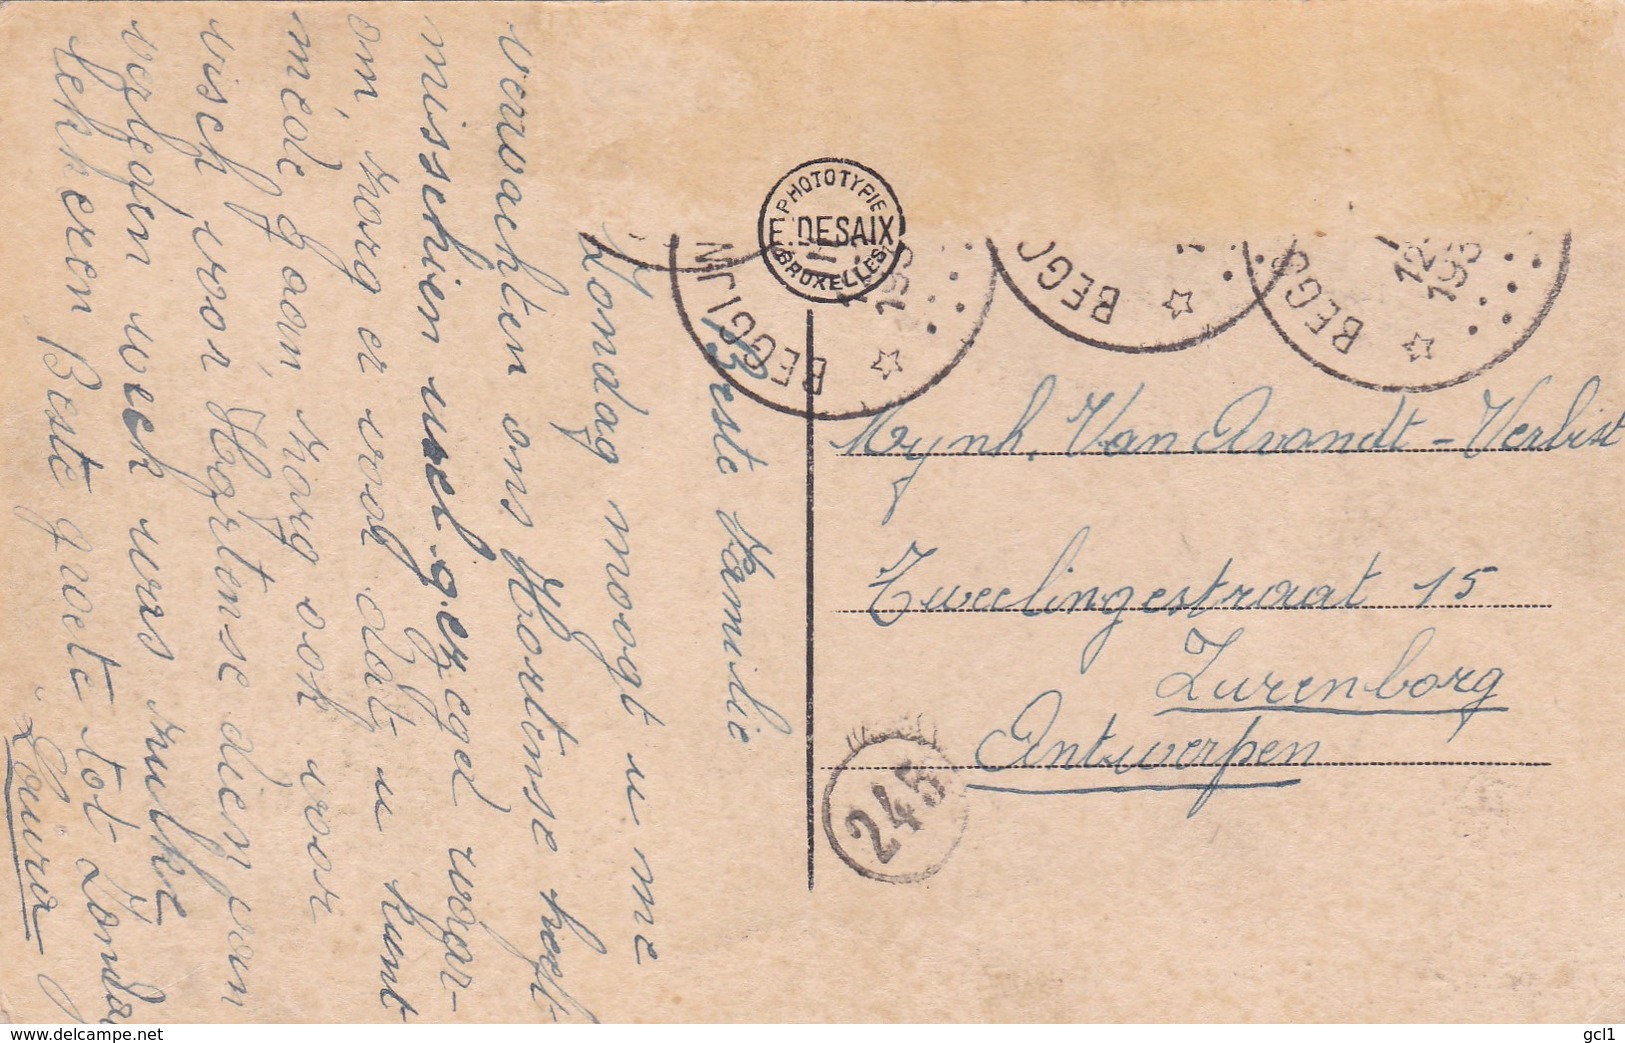 Beste Familie
Zondag moogt u me
verwachten ons Hortense heeft
misschien wel gezegd waar-
om, zorg er voor dat u kunt
mede gaan, zorg ook voor
visch voor Hortense dien van
verleden week was zulke
lekkeren Beste groete tot Zondag
Louisa
PHOTOTYPIE
E. DESAIX
BRUXELLES
BEGGIJN
193
BEGG
BEGG
12
193
Mynh. Van Avondt - Verbist
Tweelingestraat 15
Zurenborg
Antwerpen
245
www.delcampe.net
gcl1